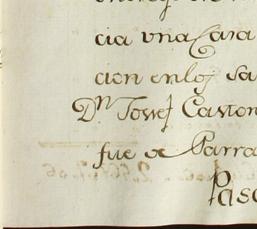 cia una Casa
cion en los Sa
Dn. Josef Caston
fue de Parra
Pasc